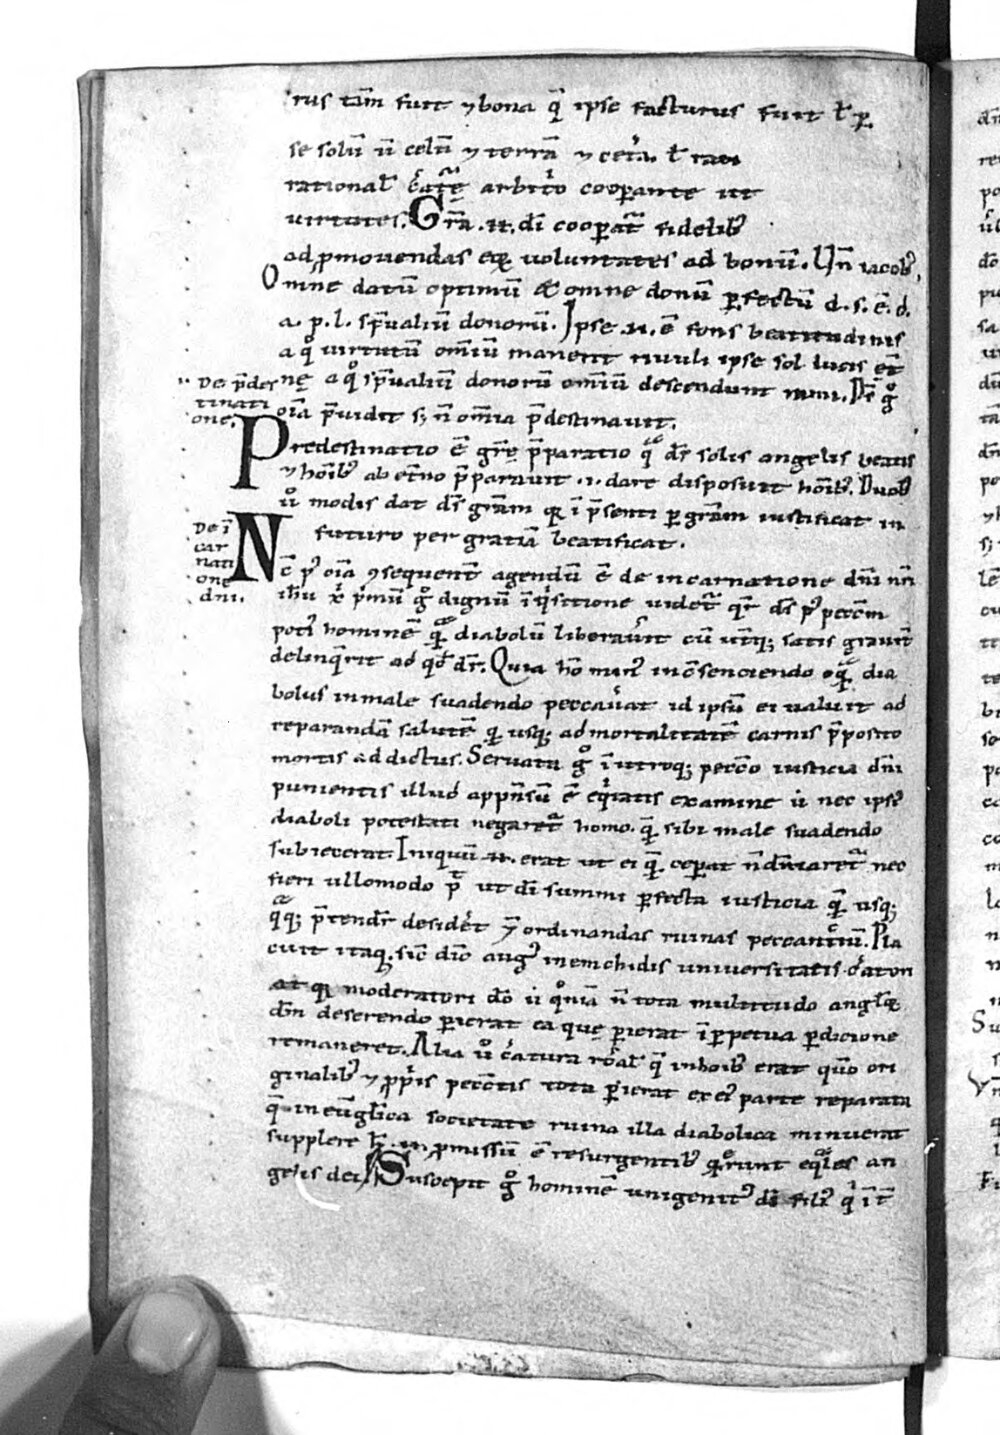 rus tam̄ fuit ⁊ bona q̄ ipse facturus fuit ł ꝑ
se solū ū celū ⁊ terrā ⁊ cet̉a. ł
rational̄ c̉at̄ę arbit̉o cooꝑante ut
virtutes. Gr̄a .n. dī cooꝑat᷑ fidelib᷒
ad ꝓmouendas eoꝝ voluntates ad bonū. Un̄ iacob᷒,
Omne datū optimū & omne donū ꝑfectū d. s. ē. d.
a. p. l. sp̄ualiū donorū. Ipse .n. ē fons beatitudinis
a qͦ uirtutū om̄iū manent riuuli ipse sol lucis et̄
nę a qͦ sp̄ualiū donorū om̄iū descendunt
De p̄des
tinati
one.
oīa p̄uidit s; n̄ om̄ia p̄destinauit.
Predestinatio ē gr̄ę p̄paratio qͣ dr̄ solis angelis beatis
⁊ hōib᷒ ab et̄no p̄parauit .i. dare disposuit hōib᷒. Duob᷒
ūͦ modis dat dr̄ gr̄am qr ī p̄senti ꝑ gr̄am iustificat in
futuro per gratiā beatificat.
De ī
car
nati
one
dni.
Nc̄ p᷒ oīa ꝯsequent̄ agendū ē de incarnatione dn̄i nr̄i
ih̄u xp̄i p̉mū gͦ dignū īq̉sitione uidet᷑ qr̄ dr̄ p᷒ pecc̄m
poti᷒ hominē qͣ diabolū liberaủit cū ut̉q; satis grauit̄
delinq̄rit ad qd̄ dr̄. Quia hō min᷒ in ꝯsenciendo qͣ dia
bolus in male suadendo peccaủat id ipsū ei ualuit ad
reparandā salutē qͥ usq; ad mortalitatē carnis p̄posito
mortis addictus. Seruata gͦ ī utroq; pecc̄o iusticia dn̄i
punientis illud appn̄sū ē eq̉tatis examine ū nec ips᷒
diaboli potestati negaret᷑ homo. qͥ sibi male suadendo
subiecerat. Iniquū .n. erat ut ei qͣ ceꝑat n̄ dn̄iaret᷑ nec
fieri ullomodo pt̄ ut dī summi ꝑfecta iusticia qͣ usq;
qͣq; p̄tendit᷑ deside̓t ⁊ ordinandas ruinas peccantiū. Pla
cuit itaq; sic̄ dīc aug᷒ in enchidis uniuersitatis c̉aton
at qꝫ moderatori dō ū qm̄iā n̄ tota multitudo angl̄oꝝ
dm̄ deserendo ꝑierat ea que ꝑierat ī ꝑpetua ꝑdicione
remaneret. Alia ūͦ c̉atura r̄onal̄ qͥ in hōib᷒ erat qm̄ ori
ginalib᷒ ⁊ ꝓp̉is pecc̄tis tota ꝑierat ex ei᷒ parte reparata
qͥ in eūgl̄ica societate ruina illa diabolica minuerat
supplere h̄ .n. ꝓmissū ē resurgentib᷒ qr̄ erunt eq̄les an
gelis dei. Suscepit gͦ hominē unigenit᷒ dī fili᷒ qͥ ī t̄